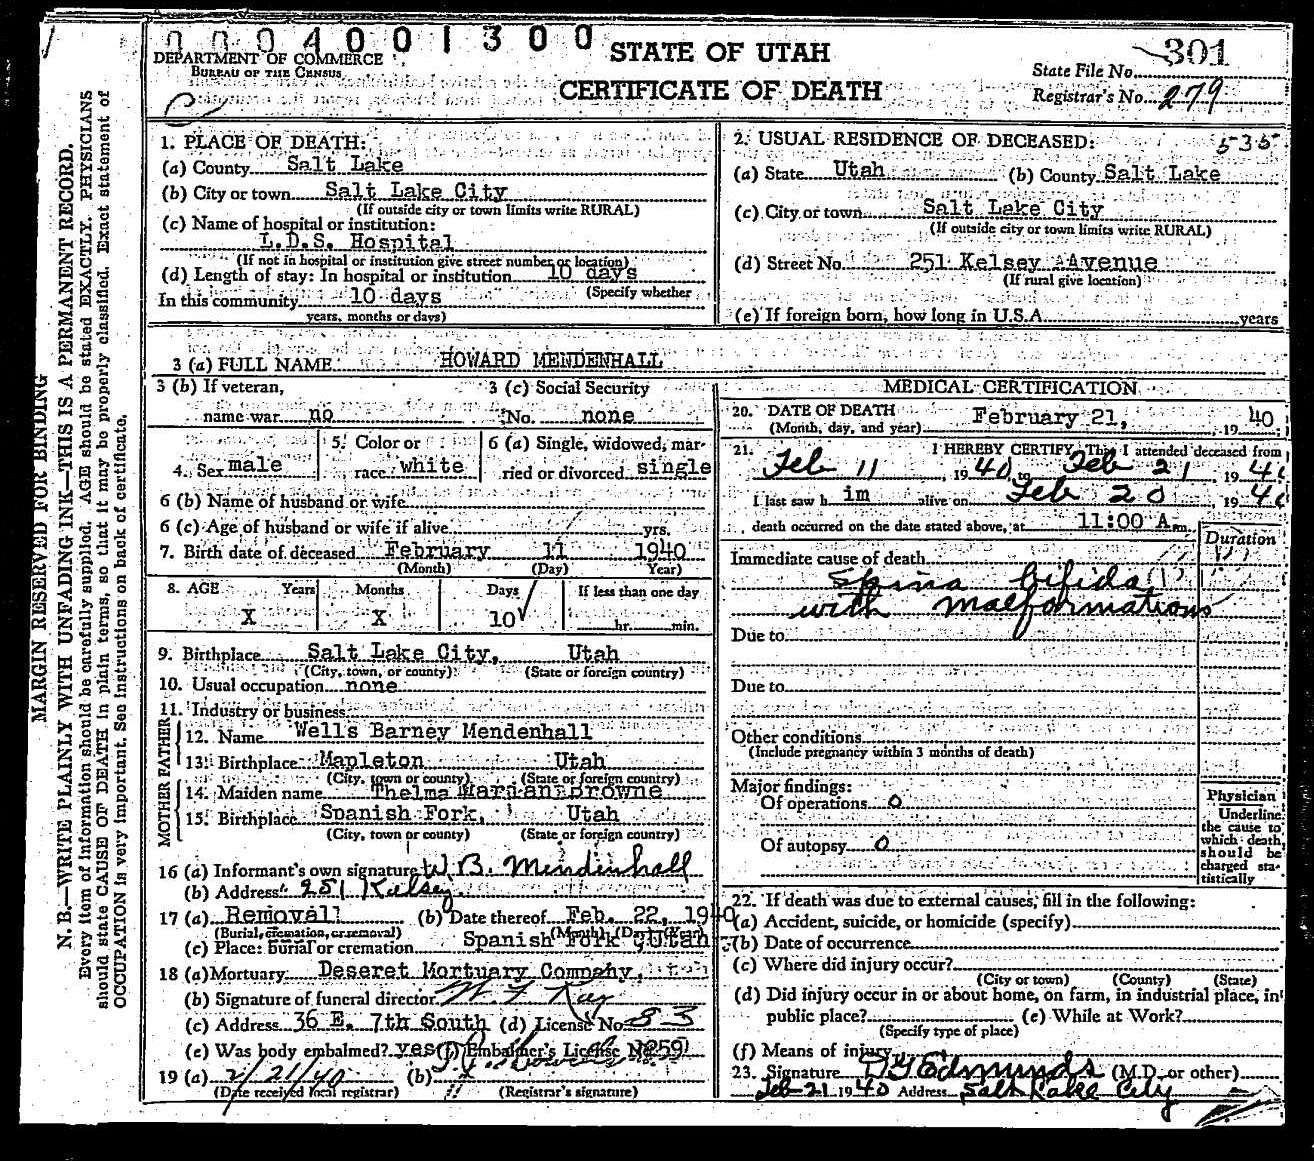 0004001300
STATE OF UTAH
CERTIFICATE OF DEATH
DEPARTMENT OF COMMERCE
BUREAU OF THE CENSUS
State File No. 301
Registrar's No. 279
MARGIN RESERVED FOR BINDING
N. B.—WRITE PLAINLY WITH UNFADING INK—THIS IS A PERMANENT RECORD.
Every item of information should be carefully supplied. AGE should be stated EXACTLY. PHYSICIANS
should state CAUSE OF DEATH in plain terms, so that it may be properly classified. Exact statement of
OCCUPATION is very important. See instructions on back of certificate.
1. PLACE OF DEATH:
(a) County Salt Lake
(b) City or town Salt Lake City
(If outside city or town limits write RURAL)
(c) Name of hospital or institution:
L.D.S. Hospital
(If not in hospital or institution give street number or location)
(d) Length of stay: In hospital or institution 10 days
(Specify whether
In this community 10 days
years, months or days)
2. USUAL RESIDENCE OF DECEASED: 535
(a) State Utah (b) County Salt Lake
(c) City or town Salt Lake City
(If outside city or town limits write RURAL)
(d) Street No. 251 Kelsey Avenue
(If rural give location)
(e) If foreign born, how long in U.S.A. years
3 (a) FULL NAME HOWARD MENDENHALL
3 (b) If veteran, 3 (c) Social Security
name war no No. none
4. Sex male 5. Color or race white 6 (a) Single, widowed, married or divorced single
6 (b) Name of husband or wife
6 (c) Age of husband or wife if alive yrs.
7. Birth date of deceased February 11 1940
(Month) (Day) Year)
8. AGE Years Months Days If less than one day
X X 10 hr. min.
9. Birthplace Salt Lake City, Utah
(City, town, or county) (State or foreign country)
10. Usual occupation none
11. Industry or business
FATHER
12. Name Wells Barney Mendenhall
13. Birthplace Mapleton Utah
(City, town or county) (State or foreign country)
MOTHER
14. Maiden name Thelma Marian Browne
15. Birthplace Spanish Fork, Utah
(City, town or county) (State or foreign country)
16 (a) Informant's own signature W. B. Mendenhall
(b) Address 251 Kelsey
17 (a) Removall (b) Date thereof Feb. 22, 1940
(Burial, cremation, or removal) (Month) (Day) (Year)
(c) Place: burial or cremation Spanish Fork, Utah
18 (a) Mortuary Deseret Mortuary Company,
(b) Signature of funeral director
(c) Address 36 E. 7th South (d) License No. 83
(e) Was body embalmed? yes (f) Embalmer's License No. 259
19 (a) 2/21/40 (b)
(Date received local registrar) (Registrar's signature)
MEDICAL CERTIFICATION
20. DATE OF DEATH February 21, 1940
(Month, day, and year)
21. I HEREBY CERTIFY, That I attended deceased from
Feb 11, 1940 to Feb 21, 1940
I last saw h im alive on Feb 20, 1940
death occurred on the date stated above, at 11:00 A.m.
Duration
Immediate cause of death
Spina bifida
with malformations
Due to
Due to
Other conditions
(Include pregnancy within 3 months of death)
Major findings:
Of operations 0
Of autopsy 0
Physician
Underline
the cause to
which death
should be
charged sta-
tistically
22. If death was due to external causes, fill in the following:
(a) Accident, suicide, or homicide (specify)
(b) Date of occurrence
(c) Where did injury occur?
(City or town) (County) (State)
(d) Did injury occur in or about home, on farm, in industrial place, in
public place? (e) While at Work?
(Specify type of place)
(f) Means of injury
23. Signature Edmunds (M.D. or other)
Feb-21 1940 Address Salt Lake City